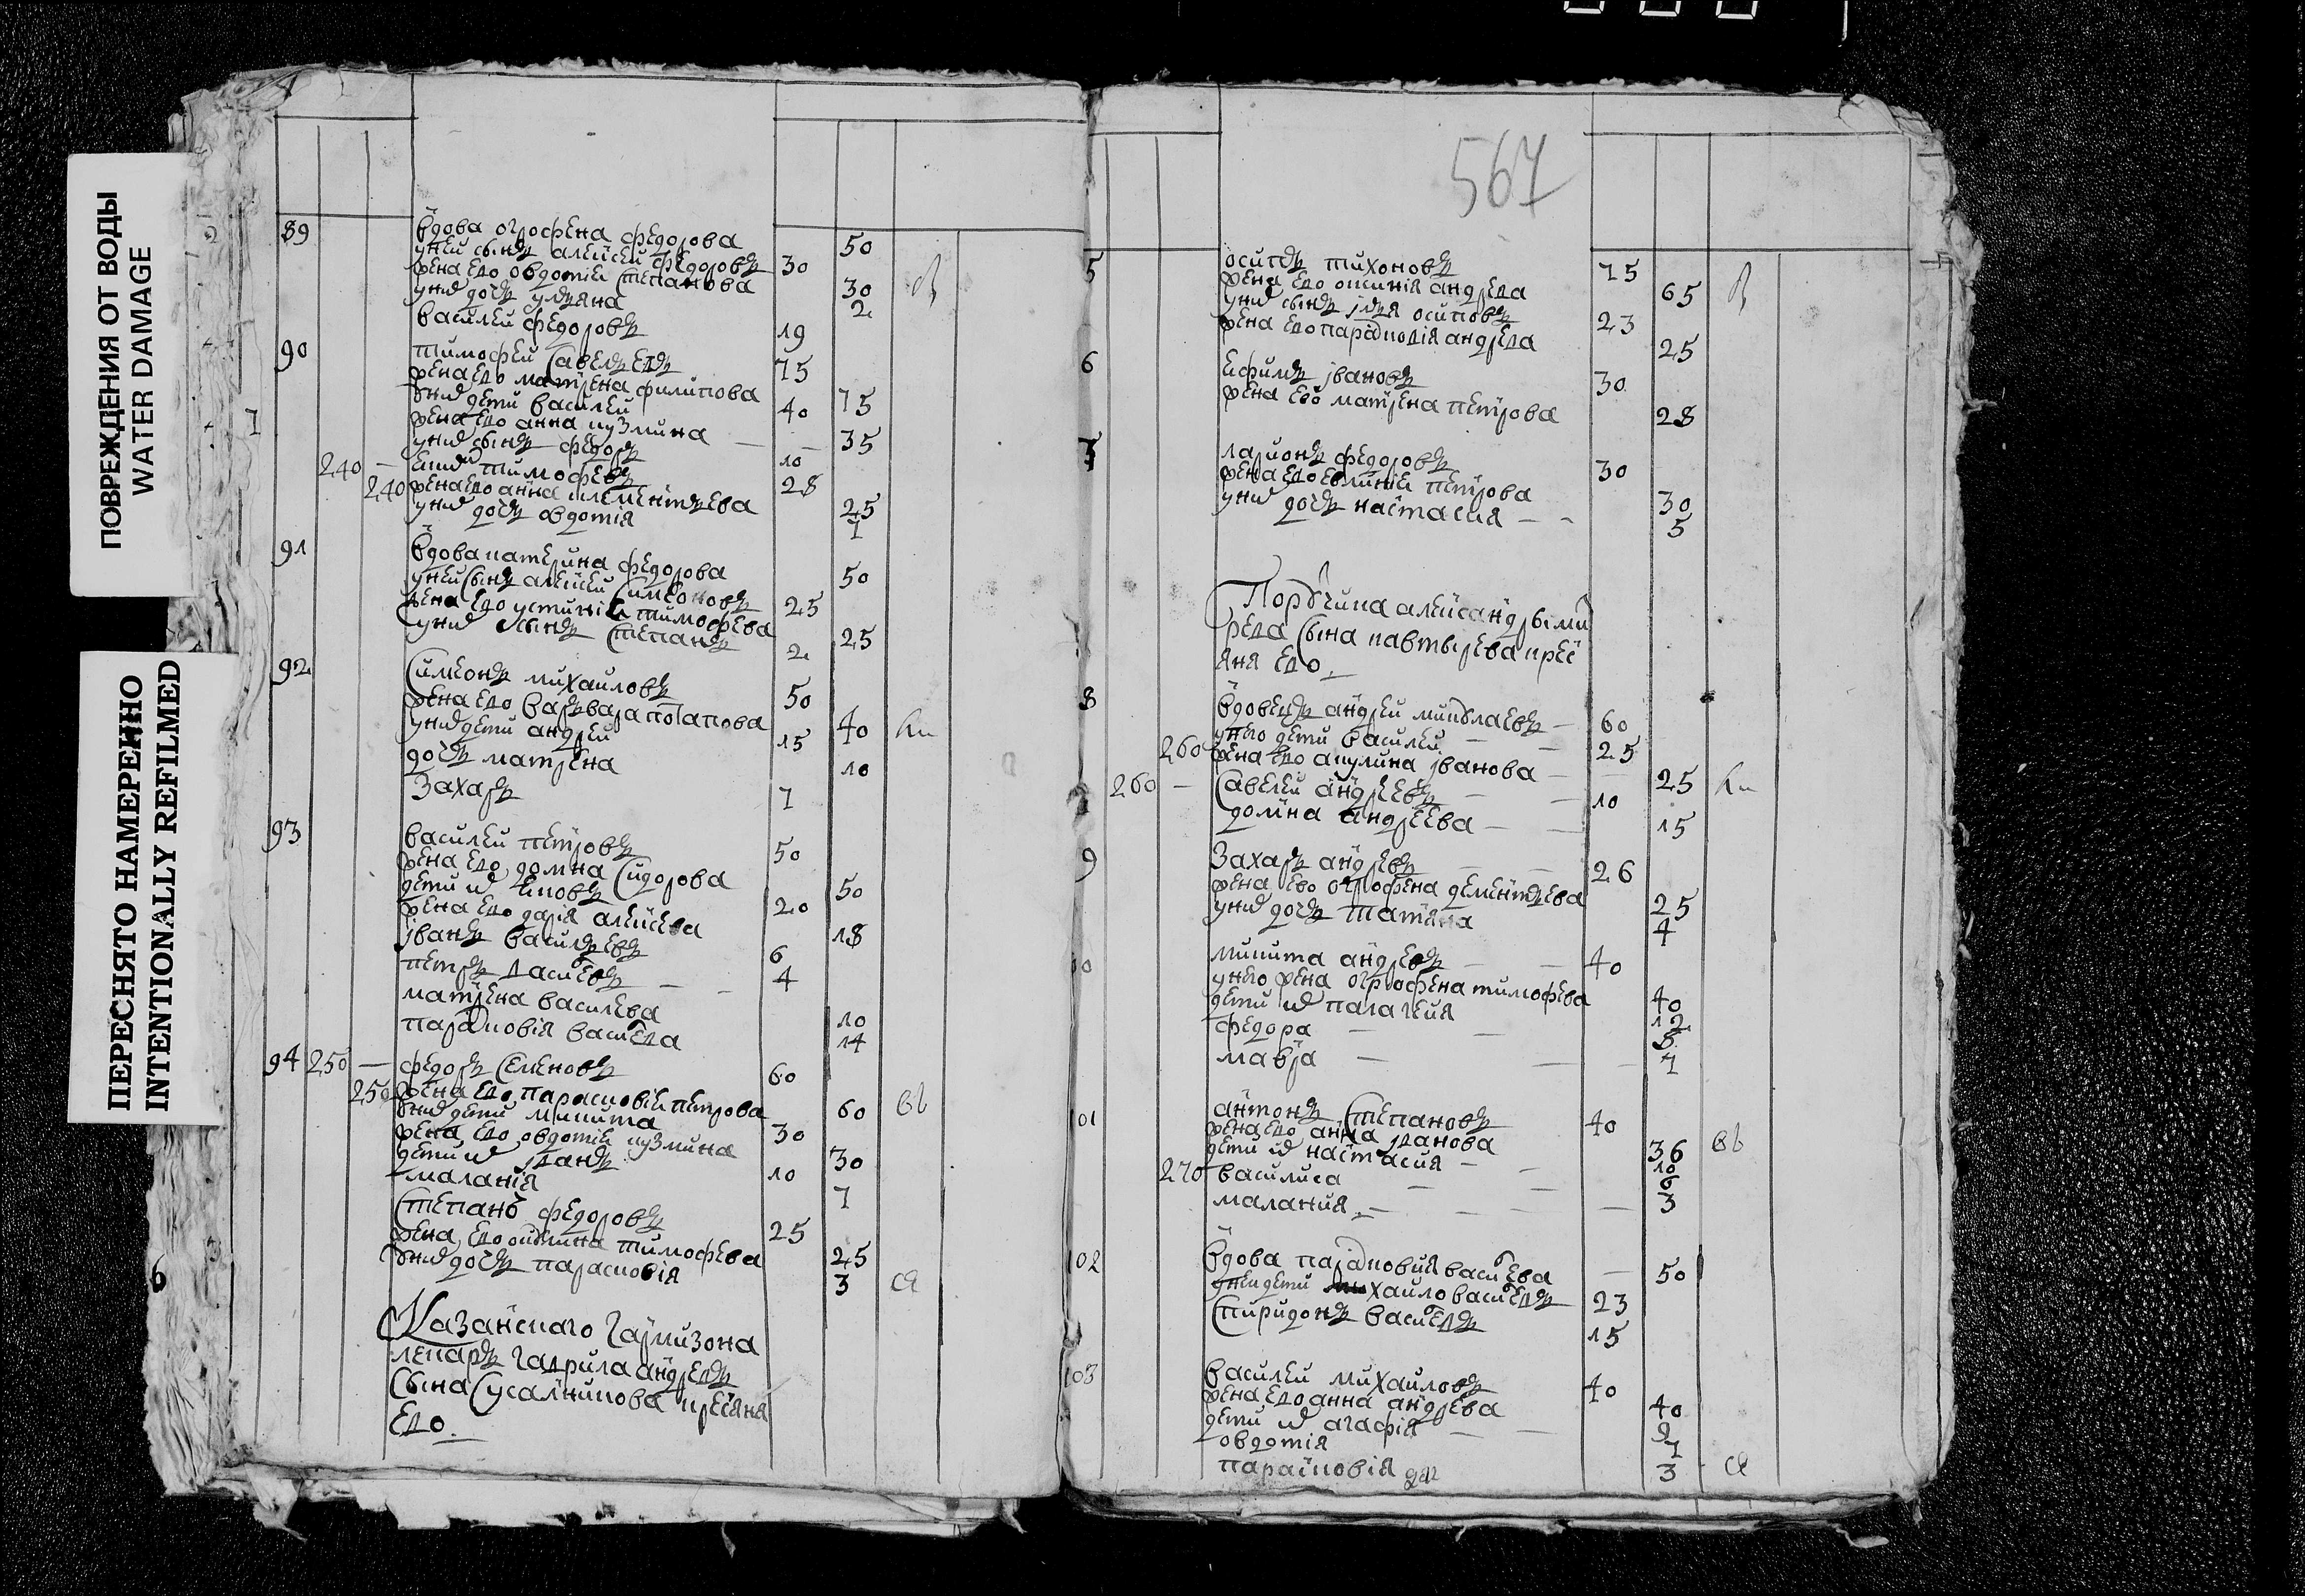 ПОВРЕЖДЕНИЯ ОТ ВОДЫ
WATER DAMAGE
ПЕРЕСНЯТО НАМЕРЕННО
INTENTIONALLY REFILMED
89 вдова огрофена федорова 50
у неи сынъ алексеи федоровъ 30
жена ево овдотия степанова 30
у них дочь ульяна 2
василеи федоровъ 19
90 тимофеи савельевъ 75
жена ево матрена филипова 75
у них дети василеи 40
жена ево анна кузмина 35
у них сынъ федоръ 10
240 тимофевъ 28
240 жена ево анна клементьева 25
у них дочь овдотия 1
91 вдова катерина федорова 50
у неи сынъ алексеи симоновъ 25
жена ево устиния тимофева 25
у них сынъ степанъ 2
92 симеонъ михаиловъ 50
жена ево варъвара потапова 40
у них дети андреи 15
дочь матрена 10
захаръ 7
93 василеи петровъ 50
жена ево домна сидорова 50
дети их 20
жена ево дария алексева 18
иванъ васильевъ 6
петръ васиевъ 4
матрена василева 10
парасковия васиева 14
94 250 федоръ семеновъ 60
250 жена ево парасковия петрова 60
у них дети никита 30
жена ево овдотия кузмина 30
дети их иванъ 10
малания 7
степанъ федоровъ 25
жена ево акилина тимофева 25
у них дочь парасковия 3
Казанского гарнизона
лекаръ гаврила андревъ
сына сусалникова кресяня
ево
567
5 осипъ тихоновъ 75
жена ево андрева 65
у них сынъ илья осиповъ 23
жена ево парасковия андрева 25
6 ефимъ ивановъ 30
жена ево матрена петрова 28
7 ларионъ федоровъ 30
жена ево петрова 30
у них дочь настасия 5
Поручика александры ми
сына кавтырева кресі
яня ево
8 вдовецъ андреи миколаевъ 60
у него дети василеи 25
260 жена ево акулина иванова 25
260 савелеи андреевъ 10
домна андреева 15
9 захаръ андревъ 26
жена ево огрофена дементьева 25
у них дочь татияна 4
0 никита андревъ 40
у него жена огрофена тимофева 40
дети их палагея 12
федора 5
мавра 1
101 антонъ степановъ 40
жена ево анна иванова 36
дети их настасия 10
270 василиса 6
малания 3
102 вдова парасковия васиева 50
у неи дети михаило васиевъ 23
спиридонъ васиевъ 15
103 василеи михаиловъ 40
жена ево анна андрева 40
дети их агафия 9
овдотия 7
парасковия 3